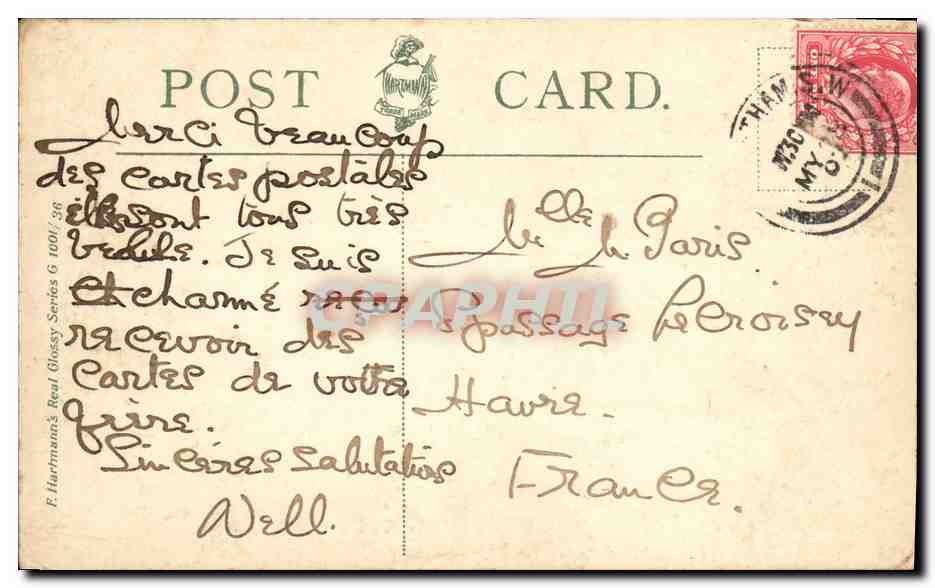 POST CARD.
HARTMANN
TRADE MARK
Merci beaucoup
des cartes postales
elles sont tous très
Je suis
et charmé
recevoir des
cartes de votre
frère.
Sincères Salutations
Nell.
Mlle M Paris
passage Lecroisey
Havre.
France.
THAM. S.W
MY
F. Hartmann's Real Glossy Series G 1001/36
CPAPHIL